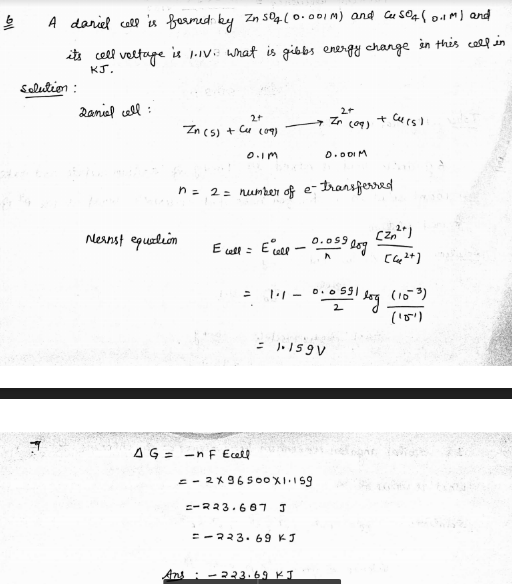 6 A daniel cell is formed by ZnSO4 (0.001M) and CuSO4 (0.1M) and
its cell voltage is 1.1V. What is gibbs energy change in this cell in
KJ.
Solution :
Daniel cell :
Zn(s) + Cu²⁺(aq) ⟶ Zn²⁺(aq) + Cu(s)
0.1M 0.001M
n = 2 = number of e⁻ transferred
Nernst equation E cell = E°cell − 0.059/n log [Zn²⁺]/[Cu²⁺]
= 1.1 − 0.0591/2 log (10⁻³)/(10⁻¹)
= 1.159V
ΔG = −nF Ecell
= −2×96500×1.159
=−223.687 J
= −223.69 KJ
Ans : −223.69 KJ